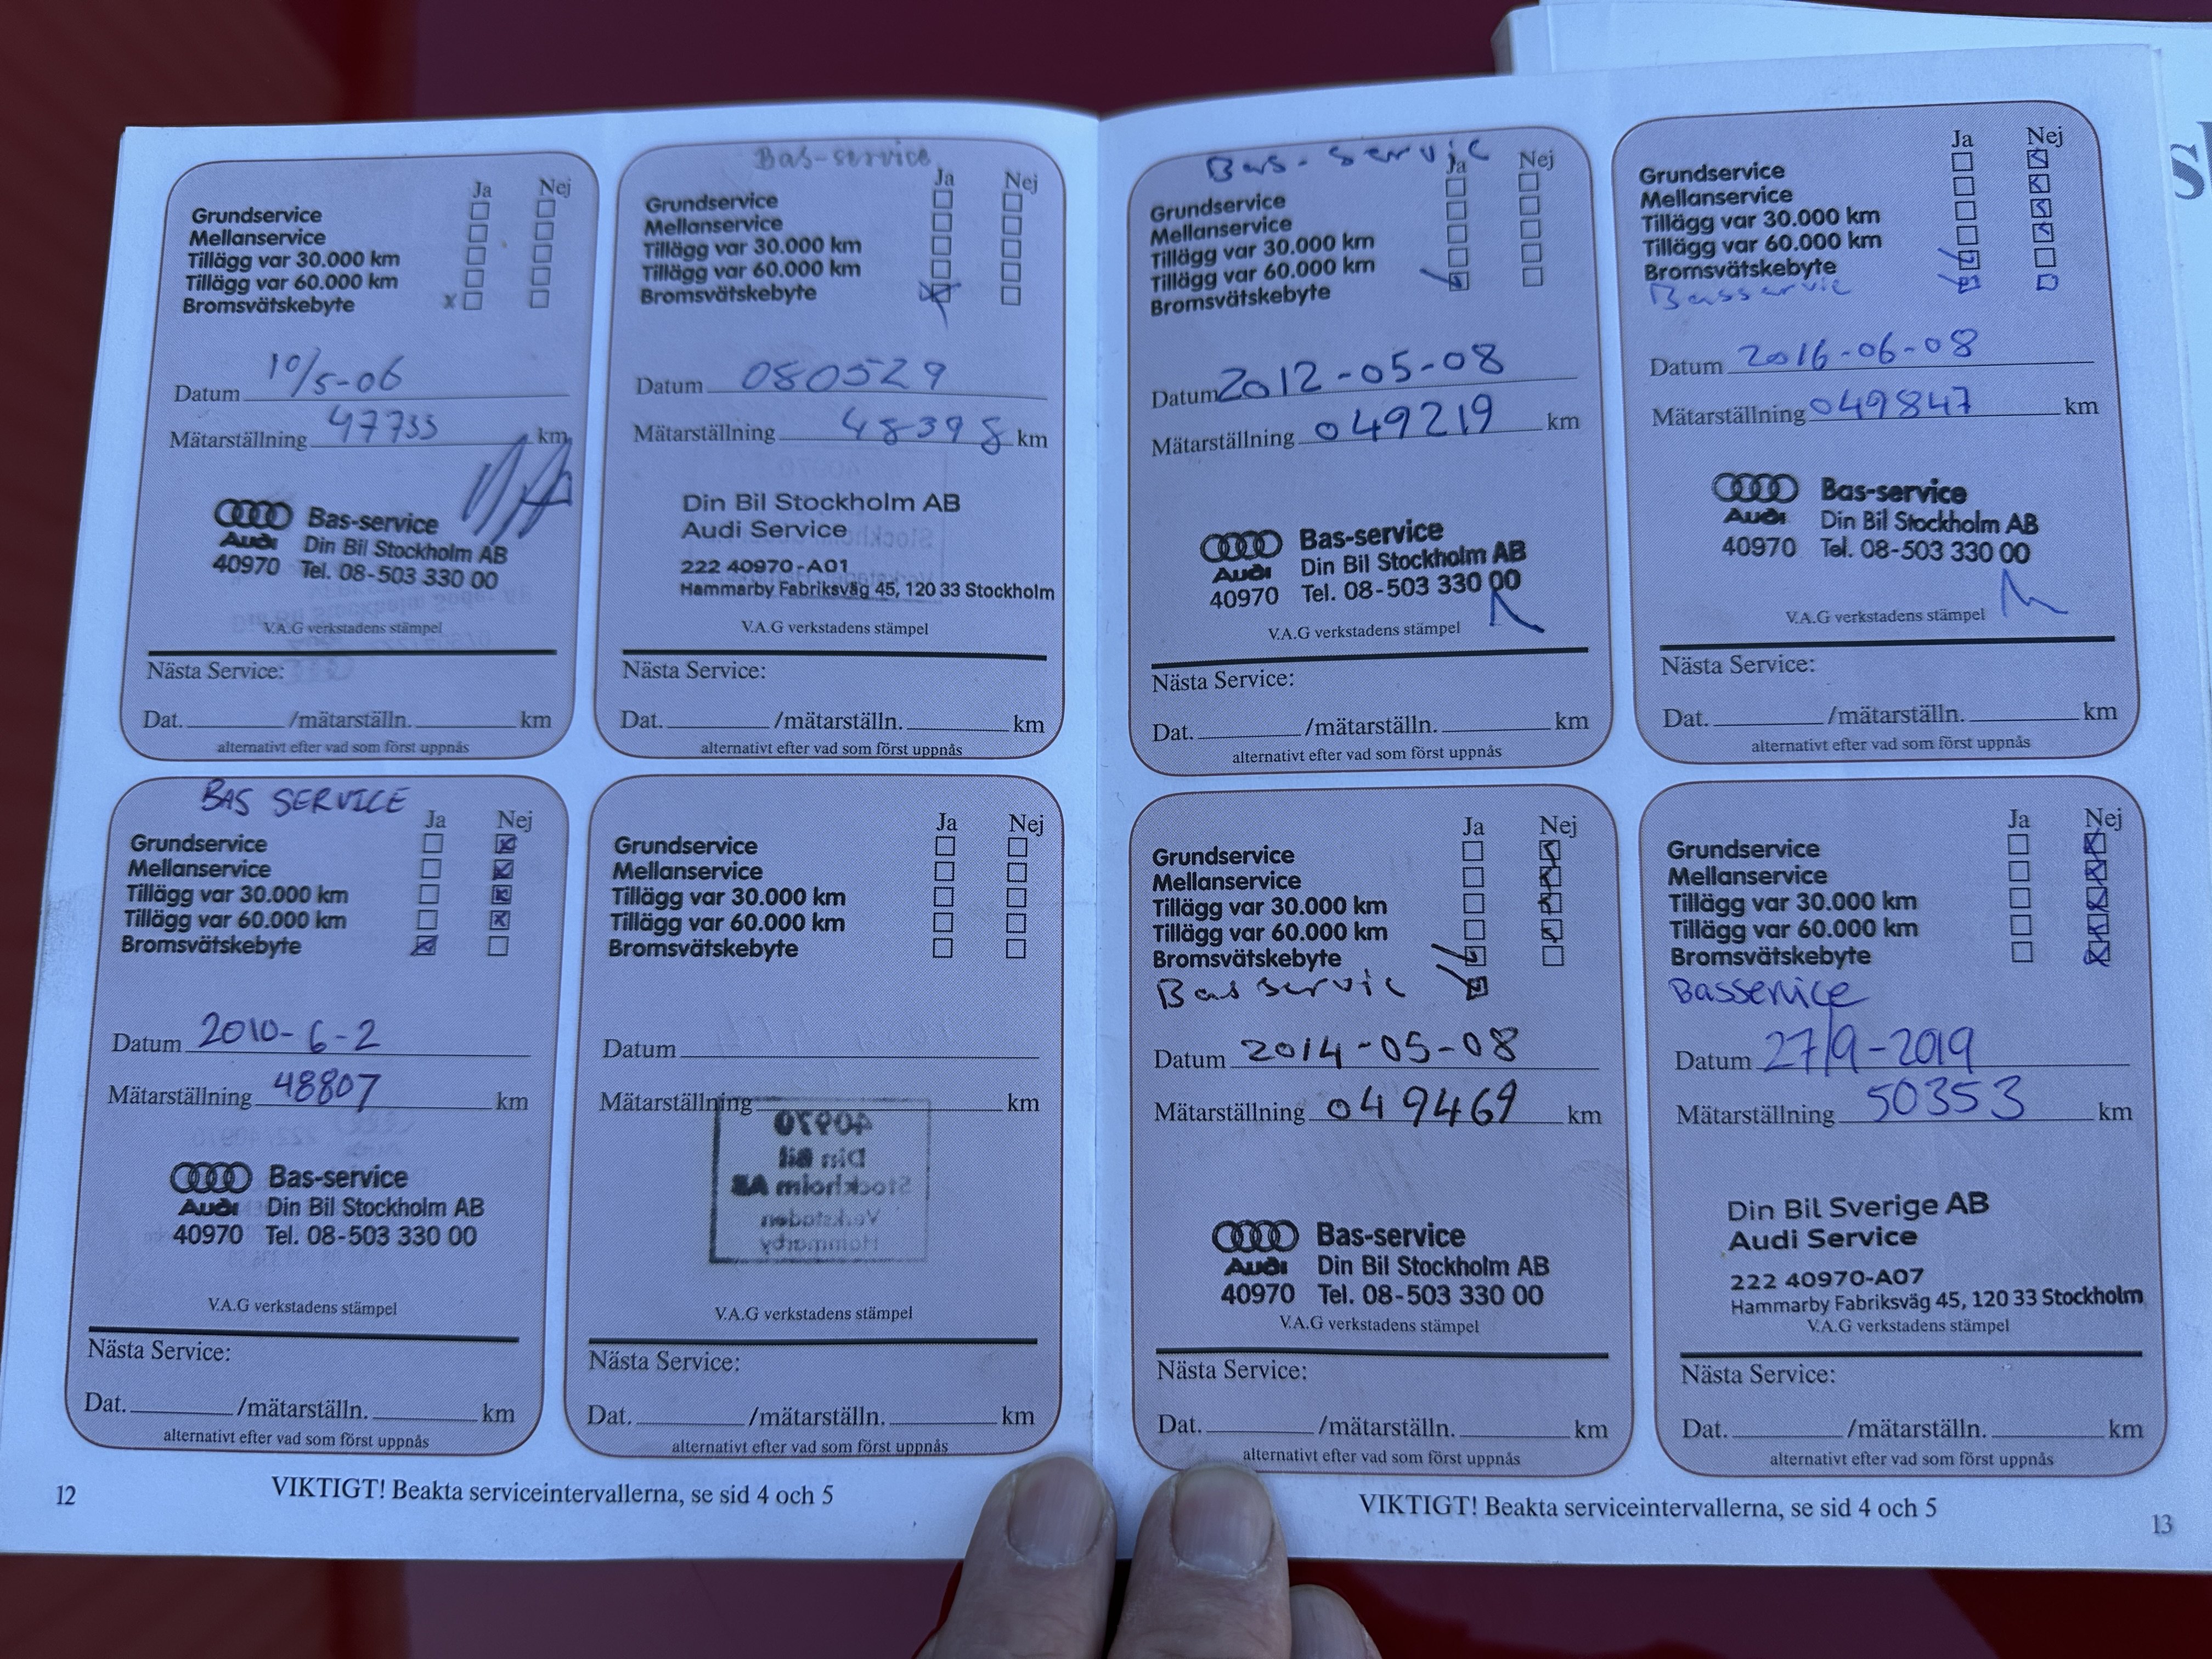 Ja Nej
Grundservice
Mellanservice
Tillägg var 30.000 km
Tillägg var 60.000 km
Bromsvätskebyte x
Datum 10/5-06
Mätarställning 47735 km
Audi Bas-service
Din Bil Stockholm AB
40970 Tel. 08-503 330 00
V.A.G verkstadens stämpel
Nästa Service:
Dat. /mätarställn. km
alternativt efter vad som först uppnås
Bas-service
Ja Nej
Grundservice
Mellanservice
Tillägg var 30.000 km
Tillägg var 60.000 km
Bromsvätskebyte
Datum 080529
Mätarställning 48398 km
Din Bil Stockholm AB
Audi Service
222 40970-A01
Hammarby Fabriksväg 45, 120 33 Stockholm
V.A.G verkstadens stämpel
Nästa Service:
Dat. /mätarställn. km
alternativt efter vad som först uppnås
BAS SERVICE
Ja Nej
Grundservice
Mellanservice
Tillägg var 30.000 km
Tillägg var 60.000 km
Bromsvätskebyte
Datum 2010-6-2
Mätarställning 48807 km
Audi Bas-service
Din Bil Stockholm AB
40970 Tel. 08-503 330 00
V.A.G verkstadens stämpel
Nästa Service:
Dat. /mätarställn. km
alternativt efter vad som först uppnås
Ja Nej
Grundservice
Mellanservice
Tillägg var 30.000 km
Tillägg var 60.000 km
Bromsvätskebyte
Datum
Mätarställning km
40970
Din Bil
Stockholm AB
Verkstaden
Hammarby
V.A.G verkstadens stämpel
Nästa Service:
Dat. /mätarställn. km
alternativt efter vad som först uppnås
12 VIKTIGT! Beakta serviceintervallerna, se sid 4 och 5
Bas-servic
Ja Nej
Grundservice
Mellanservice
Tillägg var 30.000 km
Tillägg var 60.000 km
Bromsvätskebyte
Datum 2012-05-08
Mätarställning 049219 km
Audi Bas-service
Din Bil Stockholm AB
40970 Tel. 08-503 330 00
V.A.G verkstadens stämpel
Nästa Service:
Dat. /mätarställn. km
alternativt efter vad som först uppnås
Ja Nej
Grundservice
Mellanservice
Tillägg var 30.000 km
Tillägg var 60.000 km
Bromsvätskebyte
Basservic
Datum 2016-06-08
Mätarställning 049847 km
Audi Bas-service
Din Bil Stockholm AB
40970 Tel. 08-503 330 00
V.A.G verkstadens stämpel
Nästa Service:
Dat. /mätarställn. km
alternativt efter vad som först uppnås
Ja Nej
Grundservice
Mellanservice
Tillägg var 30.000 km
Tillägg var 60.000 km
Bromsvätskebyte
Bas servic
Datum 2014-05-08
Mätarställning 049469 km
Audi Bas-service
Din Bil Stockholm AB
40970 Tel. 08-503 330 00
V.A.G verkstadens stämpel
Nästa Service:
Dat. /mätarställn. km
alternativt efter vad som först uppnås
Ja Nej
Grundservice
Mellanservice
Tillägg var 30.000 km
Tillägg var 60.000 km
Bromsvätskebyte
Basservice
Datum 27/9-2019
Mätarställning 50353 km
Din Bil Sverige AB
Audi Service
222 40970-A07
Hammarby Fabriksväg 45, 120 33 Stockholm
V.A.G verkstadens stämpel
Nästa Service:
Dat. /mätarställn. km
alternativt efter vad som först uppnås
VIKTIGT! Beakta serviceintervallerna, se sid 4 och 5 13